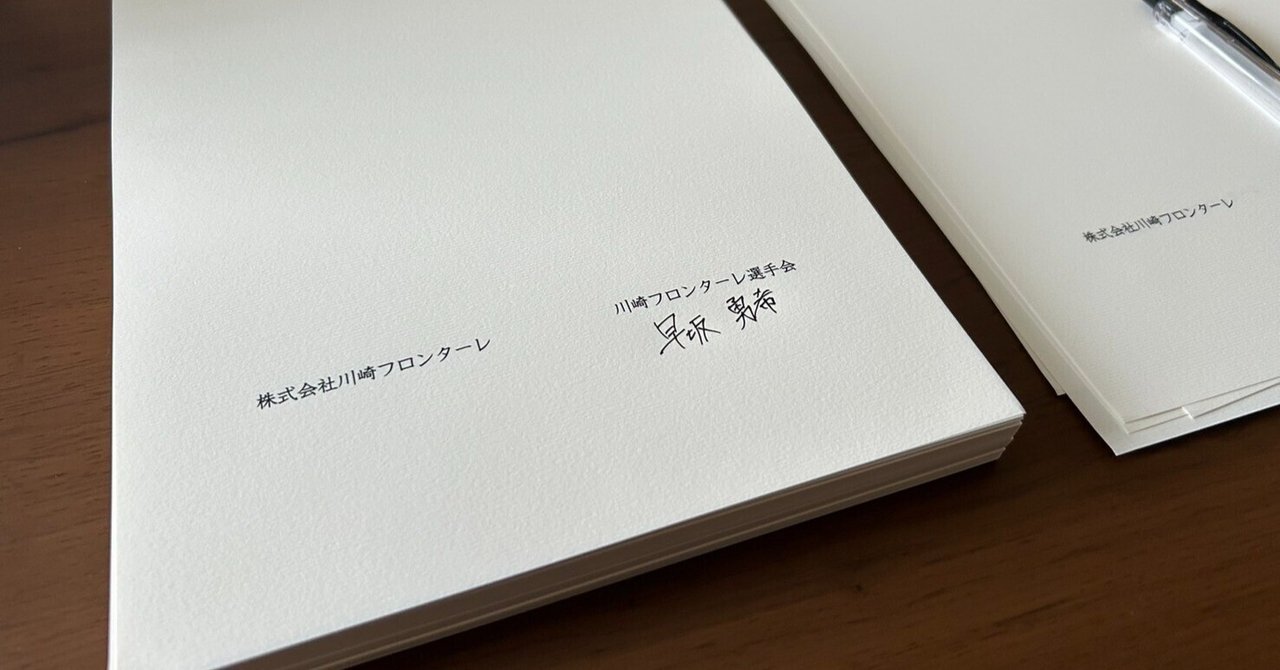 川崎フロンターレ選手会
早坂 勇希
株式会社川崎フロンターレ
株式会社川崎フロンターレ